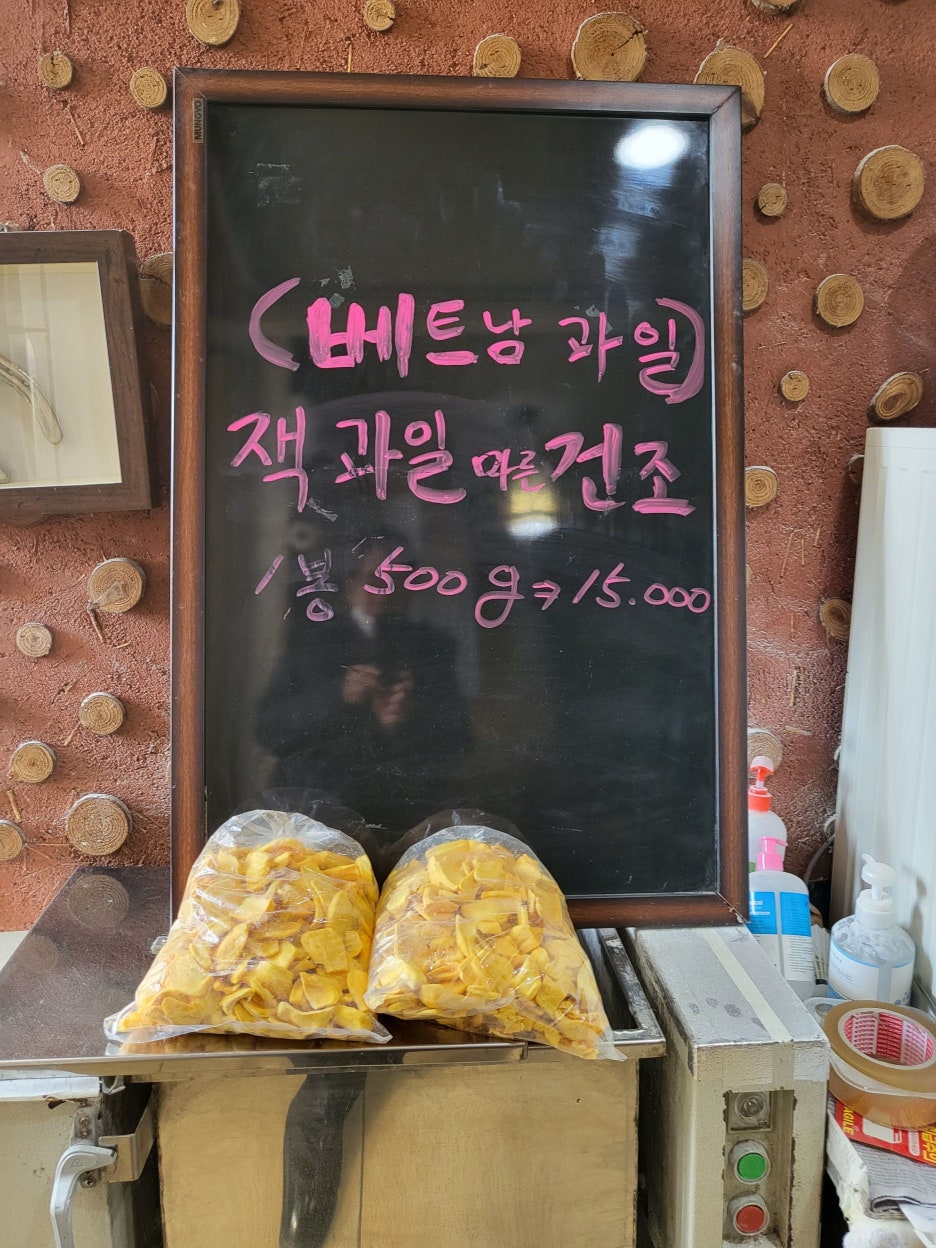 MUNGYO
(베트남 과일)
잭 과일 마른 건조
1봉 500g⇒15.000
AGILE